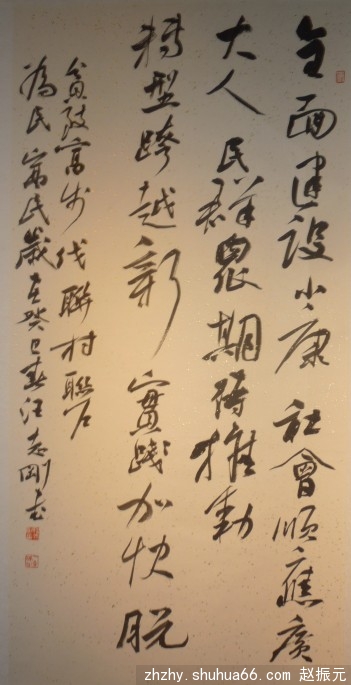 全面建設小康社會順應廣
大人民群眾期待推動
轉型跨越新實踐加快脫
貧致富步伐聯村聯户
為民富民歲在癸巳春汪志剛書
zhzhy.shuhua66.com 赵振元